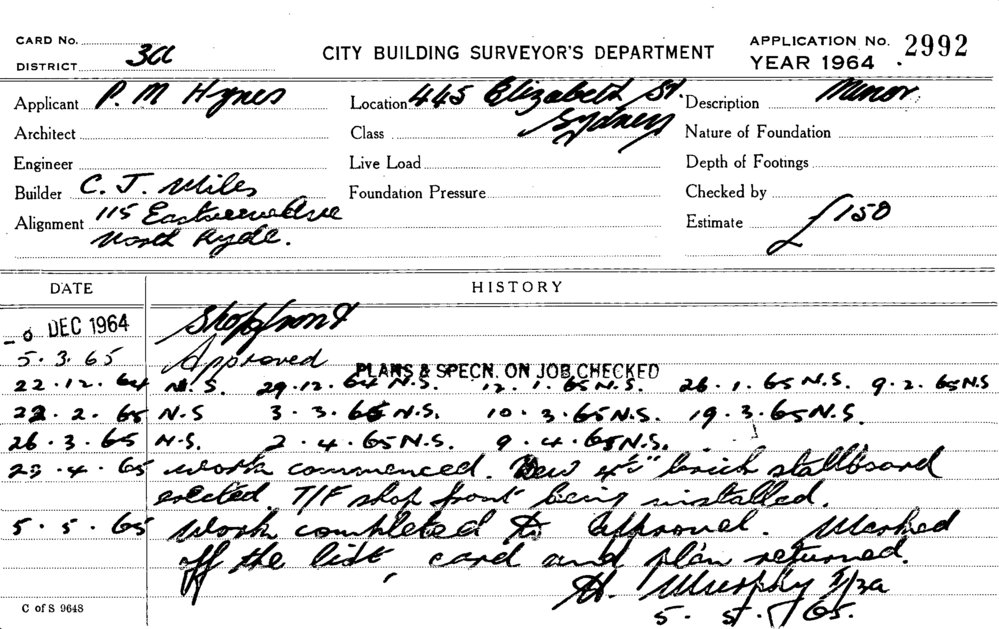 CARD No.
DISTRICT 3a
CITY BUILDING SURVEYOR'S DEPARTMENT
APPLICATION No. 2992
YEAR 1964
Applicant P. M Hynes
Location 445 Elizabeth St. Sydney
Description Minor
Architect
Class
Nature of Foundation
Engineer
Live Load
Depth of Footings
Builder C. J. Miles
Foundation Pressure
Checked by
Alignment 115 Eastview Ave
North Ryde.
Estimate £150
DATE
HISTORY
DEC 1964 Shopfront
5.3.65 Approved
PLANS & SPECN. ON JOB CHECKED
22.12.64 N.S. 29.12.64 N.S. 12.1.65 N.S. 26.1.65 N.S. 9.2.65 N.S
22.2.65 N.S 3.3.65 N.S. 10.3.65 N.S. 19.3.65 N.S.
26.3.65 N.S. 2.4.65 N.S. 9.4.65 N.S.
23.4.65 work commenced. New 4½" brick stallboard
erected. T/F shop front being installed.
5.5.65 Work completed to approval. Marked
off the list, card and plan returned.
H. Murphy 3a
5.5.65.
C of S 9648